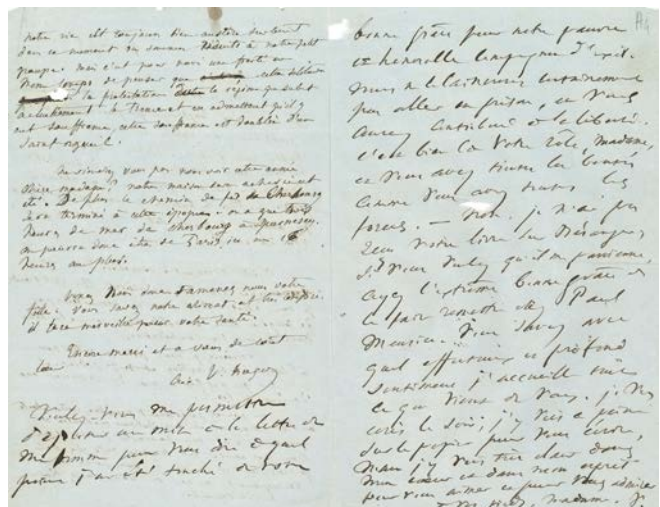 notre vie est toujours bien austère surtout
dans ce moment où sommes réduits à notre petit
groupe. mais c'est pour nous une fortification
de penser que cette solitude
est la protestation le régime qui subit
et trouvant en admettant qu'il y
ait souffrance, cette souffrance est doublée d'un
saint orgueil.
Ne viendrez vous pas nous voir cette année
chère madame? notre maison sera achevée cet
été. De plus le chemin de fer de Cherbourg
sera terminé à cette époque. on a que trois
heures de mer de Cherbourg à Guernesey.
on pourra donc être de Paris ici en 16
heures au plus.
Venez donc amenez nous votre
fille. vous savez notre
il fera merveille pour votre santé.
Encore merci et à vous de tout
cœur
V. Hugo
Voulez vous me permettre
d'ajouter un mot à la lettre de
ma femme pour vous dire à quel
point j'ai été touché de votre
A4
bonne grâce pour notre pauvre
et honorable compagnon d'exil.
mais
pas aller en prison, et vous
aurez contribué à le libérer.
c'est bien là votre rôle, madame,
et vous avez toutes les bontés
comme vous avez toutes les
forces. — Non, je n'ai pas
lu votre livre sur Béranger,
si vous voulez qu'il me parvienne,
ayez l'extrême bonne grâce de
le faire remettre chez Paul
Meurice. Vous savez avec
quel et profond
sentiment j'accueille tout
ce qui vient de vous. je vous
écris le soir; j'y vois à peine
sur le papier pour vous écrire,
mais j'y vois très clair dans
mon cœur et dans mon esprit
pour vous aimer et pour vous admirer
madame. je